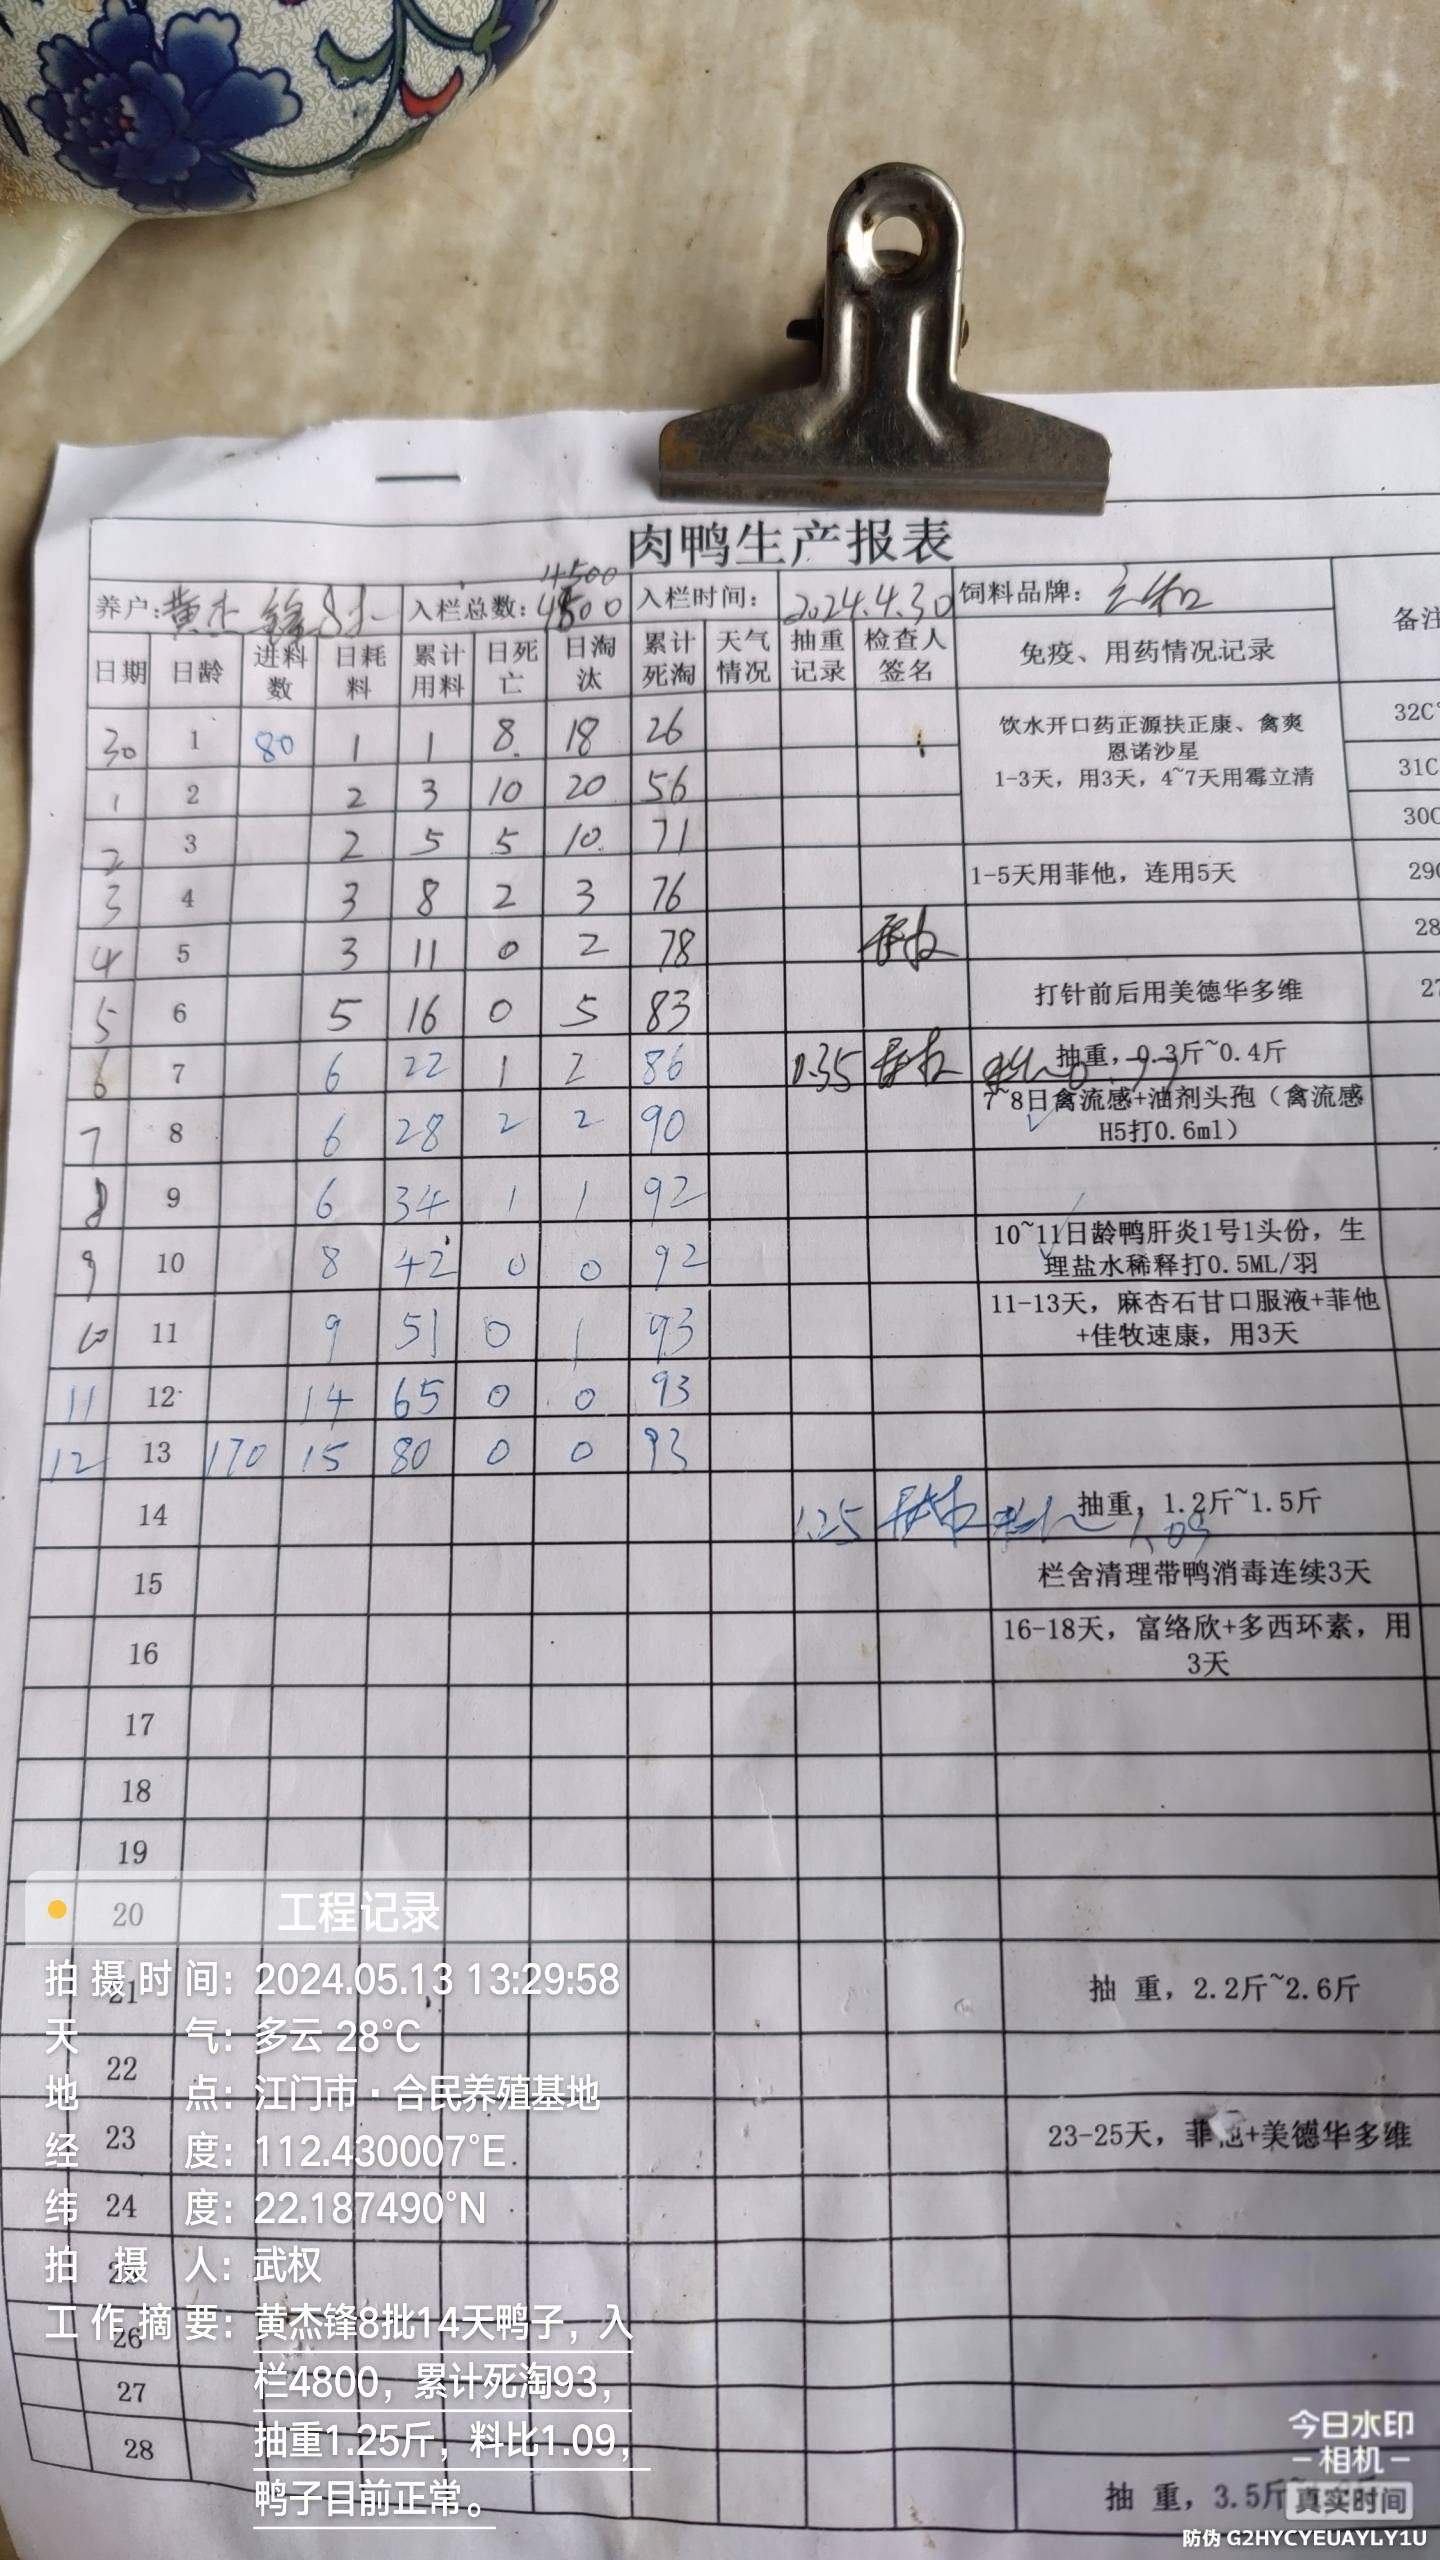 肉鸭生产报表
4500
养户:黄杰锋8批 入栏总数:4800 入栏时间: 2024.4.30 饲料品牌:
备注
日期 日龄 进料数 日耗料 累计用料 日死亡 日淘汰 累计死淘 天气情况 抽重记录 检查人签名 免疫、用药情况记录
30 1 80 1 1 8 18 26 饮水开口药正源扶正康、禽爽 32C°
恩诺沙星
1 2 2 3 10 20 56 1-3天，用3天，4~7天用霉立清 31C
2 3 2 5 5 10 71 30C
3 4 3 8 2 3 76 1-5天用菲他，连用5天 29C
4 5 3 11 0 2 78 28
5 6 5 16 0 5 83 打针前后用美德华多维 27
6 7 6 22 1 2 86 0.35 抽重，0.3斤~0.4斤
7 8 6 28 2 2 90 7~8日禽流感+油剂头孢（禽流感
H5打0.6ml）
8 9 6 34 1 1 92
9 10 8 42 0 0 92 10~11日龄鸭肝炎1号1头份，生
理盐水稀释打0.5ML/羽
10 11 9 51 0 1 93 11-13天，麻杏石甘口服液+菲他
+佳牧速康，用3天
11 12 14 65 0 0 93
12 13 170 15 80 0 0 93
14 1.25 抽重，1.2斤~1.5斤
料比 1.09
15 栏舍清理带鸭消毒连续3天
16 16-18天，富络欣+多西环素，用
3天
17
18
19
20
工程记录
21 抽 重，2.2斤~2.6斤
拍摄时间：2024.05.13 13:29:58
天气：多云 28°C
22
地点：江门市·合民养殖基地
23 23-25天，菲他+美德华多维
经度：112.430007°E
24
纬度：22.187490°N
25
拍摄人：武权
26
工作摘要：黄杰锋8批14天鸭子，入
27
栏4800，累计死淘93，
28
抽重1.25斤，料比1.09，
鸭子目前正常。
抽 重，3.5斤
今日水印
相机
真实时间
防伪 G2HYCYEUAYLY1U